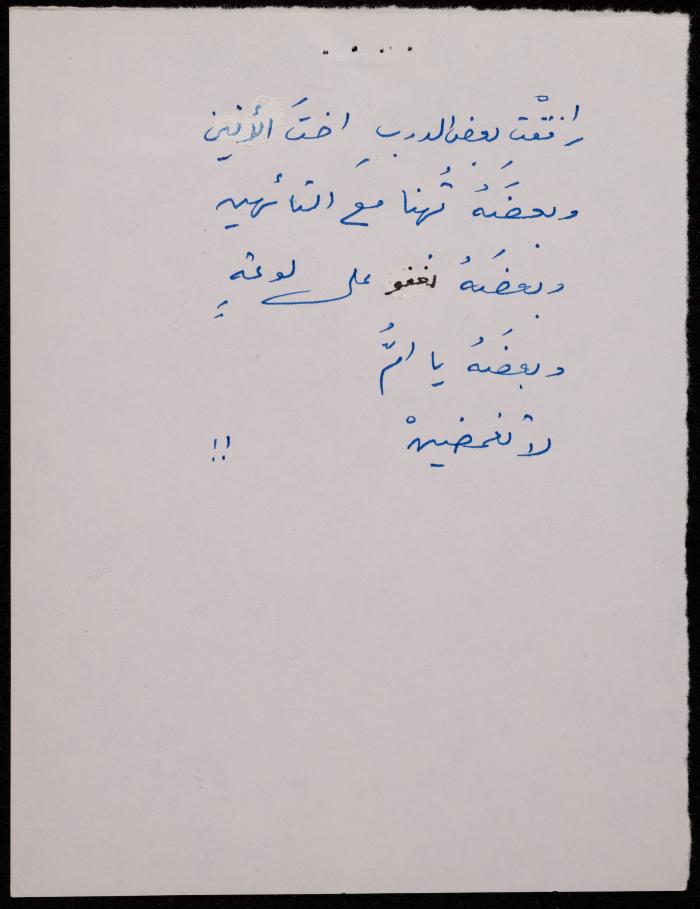 . . . .
رافقْت بعض الدربِ اختَ الأنين
وبعضَهُ تُهنا معَ التائهين
وبعضَهُ نغفو على لوعةٍ
وبعضَهُ يا امُّ
لا تغمضينْ !!